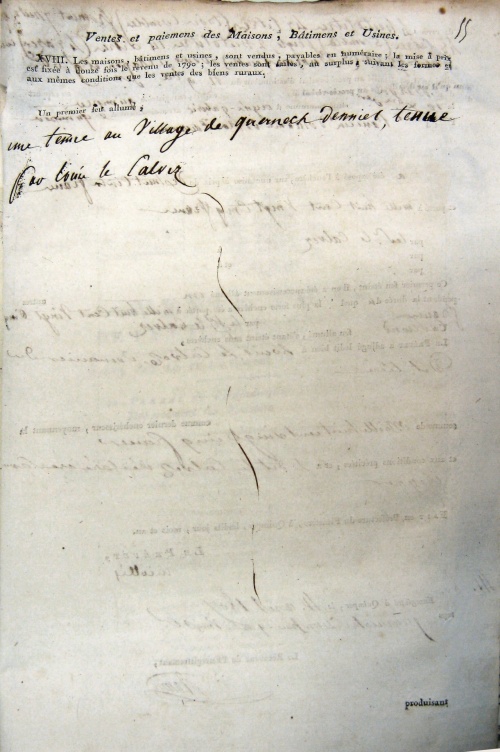 55
Ventes et paiemens des Maisons, Bâtimens et Usines.
XVIII. Les maisons, bâtimens et usines, sont vendus, payables en numéraire; la mise à prix
est fixée à douze fois le revenu de 1790; les ventes sont faites, au surplus, suivant les formes et
aux mêmes conditions que les ventes des biens ruraux.
Un premier feu allumé;
une tenue au Village de querneck denniel, tenue
par Louis le Calvez
produisant